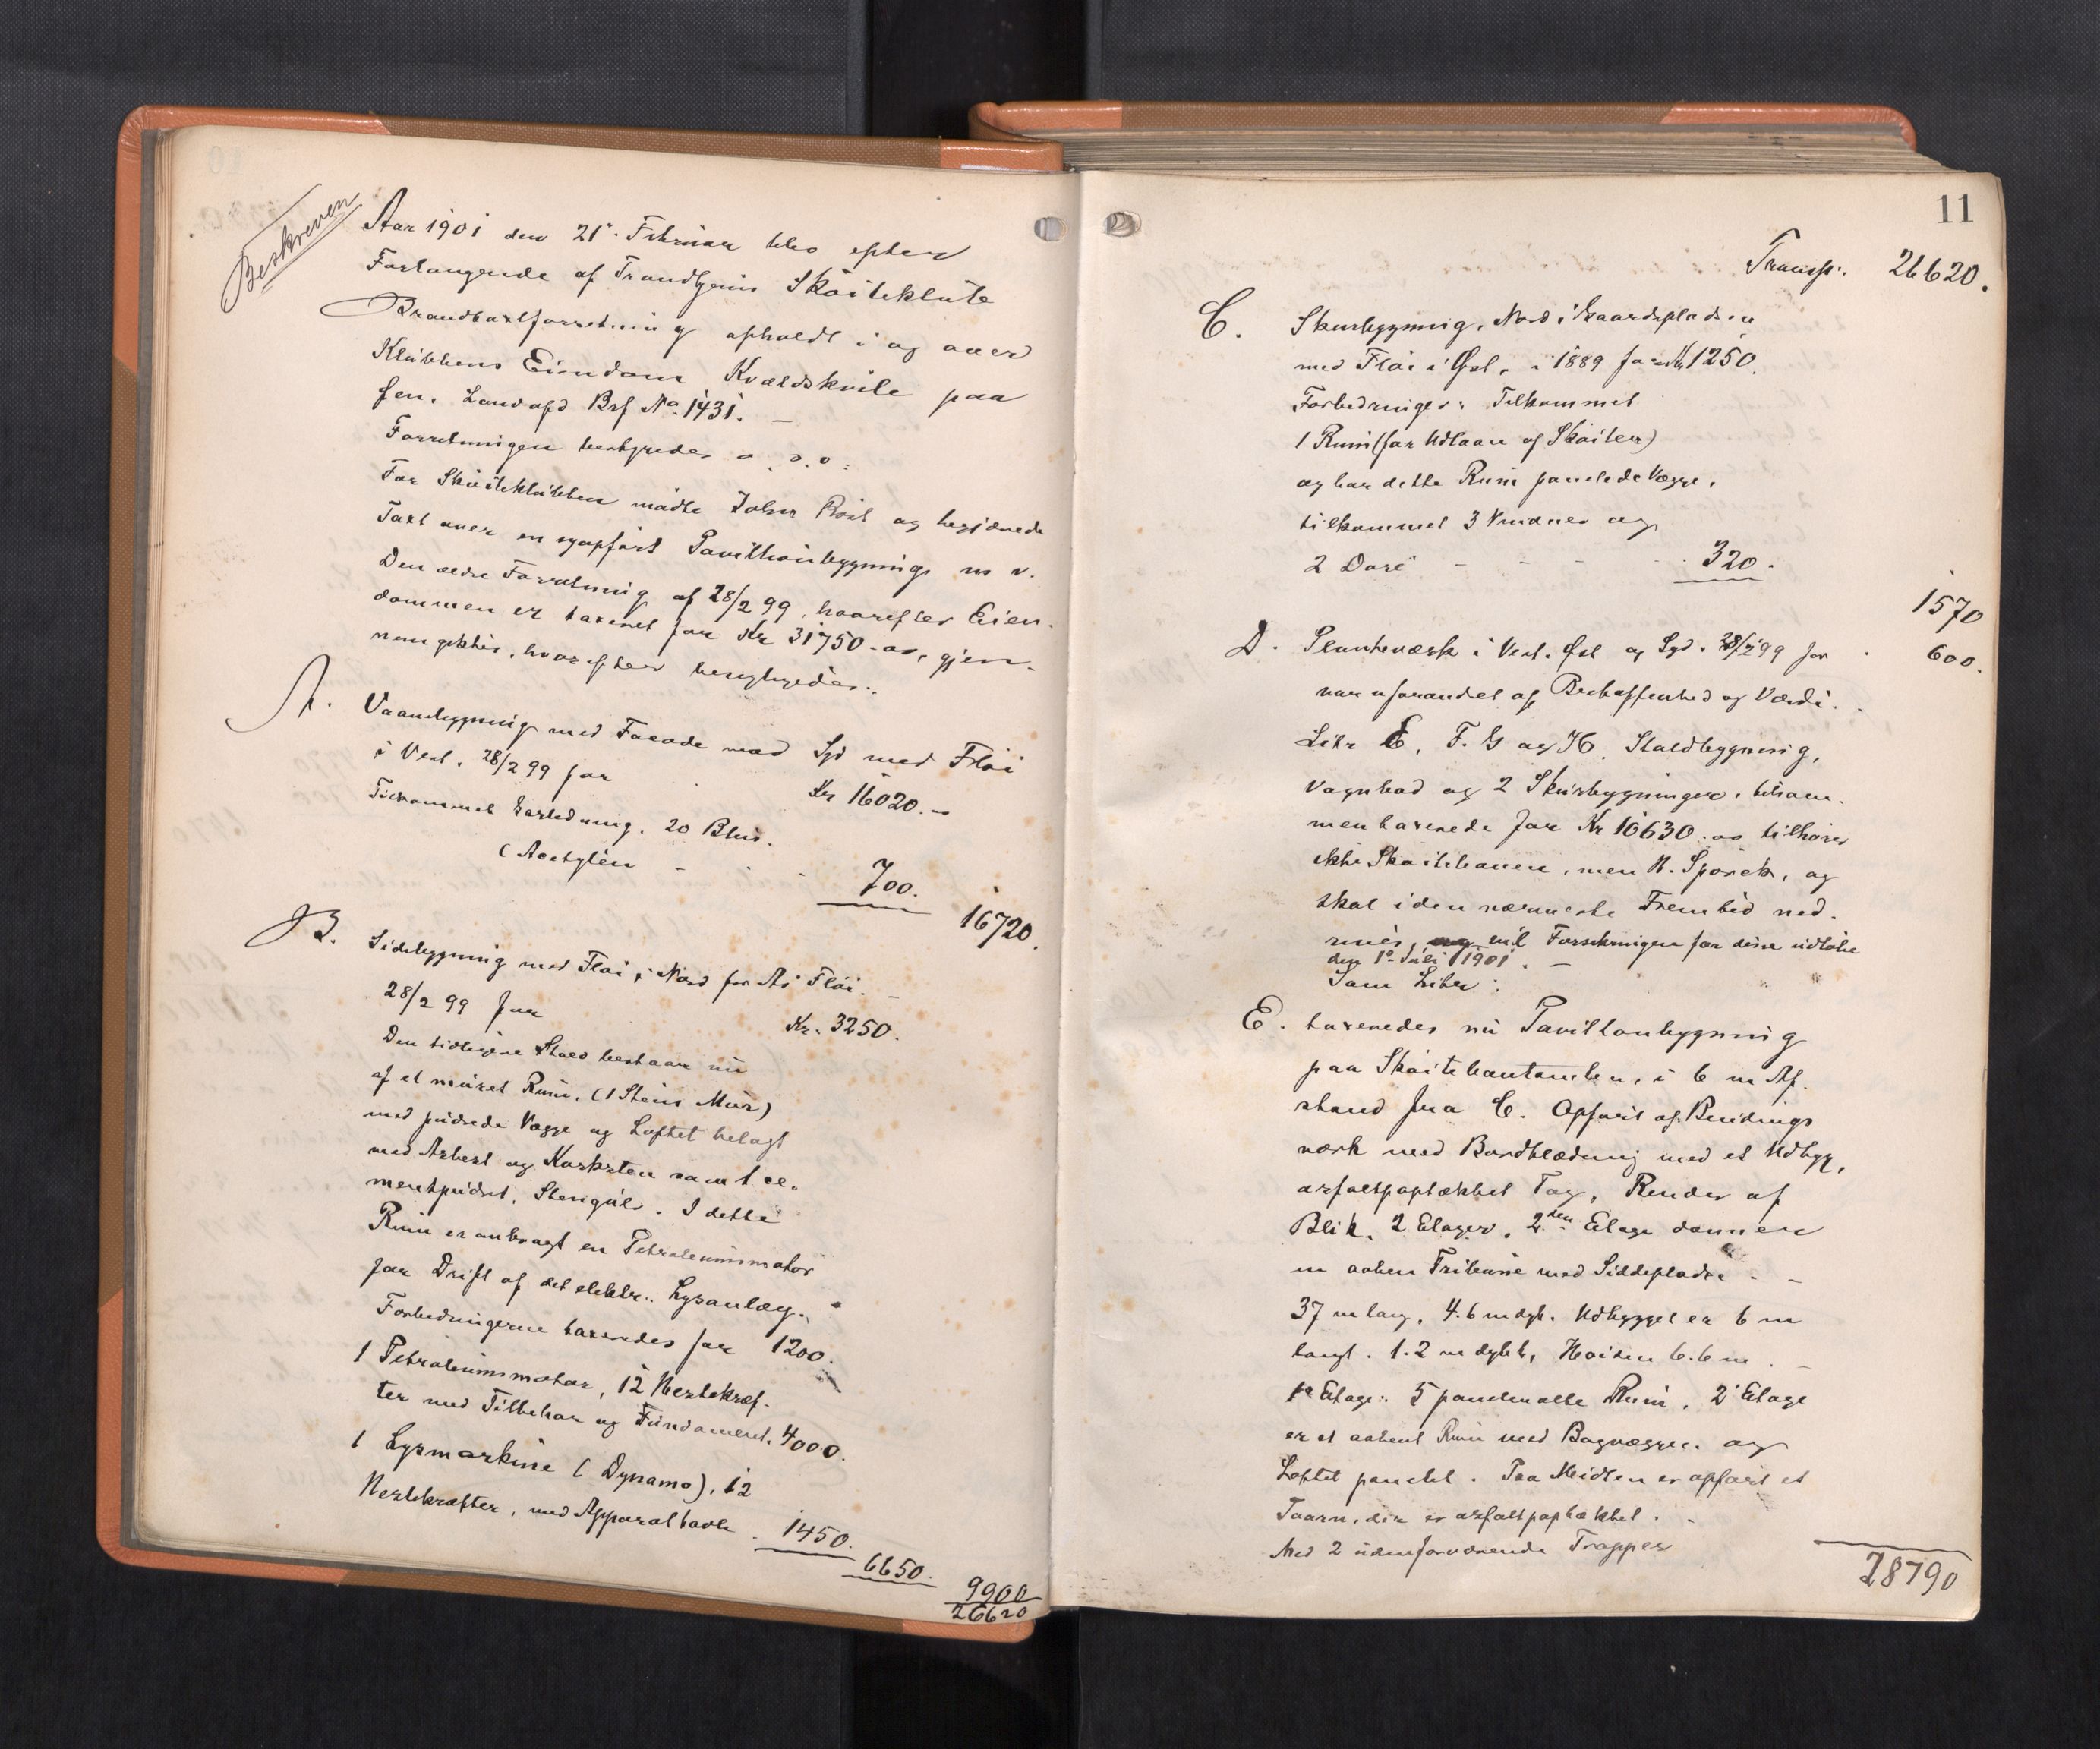 Beskreven
Aar 1901 den 21. Februar blev efter
Forlangende af Trondhjems Skøiteklub
Brandtaxtforretning afholdt i og over
Klubbens Eiendom Kvældskvile paa
Øen, Landafd Brf No. 1431. –
Forretningen bestyredes o. s. v:
For Skøiteklubben mødte John Röst og begjærede
Taxt over en nyopført Pavillonbygning m v.
Den ældre Forretning af 28/2 99, hvorefter Eien-
dommen er taxeret for Kr 31750.00, gjen-
nemgikkes, hvorefter besigtigedes:
A. Vaanbygning med Facade mod Syd med Fløi
i Vest. 28/2 99 for Kr 16020.–
Tilkommet Gasledning. 20 Blus.
(Acetylén - - - 700.
16720.
B. Sidebygning med Fløi i Nord for As Fløi. –
28/2 99 for Kr. 3250.
Den tidligere Stald bestaar nu
af et muret Rum, (1 Stens Mur)
med pudsede Vægge og Loftet belagt
med Asbest og Korksten samt ce-
mentpudset, Stengulv. I dette
Rum er anbragt en Petroleumsmotor
for Drift af det elektr. Lysanlæg.
Forbedringerne taxeredes for 1200.
1 Petroleumsmotor, 12 Hestekræf-
ter med Tilbehør og Fundament. 4000.
1 Lysmaskine (Dynamo), 12
Hestekræfter, med Apparattavle. 1450.
6650.
9900
26620
11
Transp. 26620.
C. Skurbygning, Nord i Gaardspladsen
med Fløi i Øst, i 1889 for Kr 1250.
Forbedringer: Tilkommet
1 Rum (for Udlaan af Skøiter)
og har dette Rum panelede Vægge,
tilkommet 3 Vinduer og
2 Døre - - - - 320.
1570
D. Plankeværk i Vest. Øst og Syd. 28/2 99 for 600.
var uforandret af Beskaffenhed og Værdi.
Litr E, F. G og H. Staldbygning,
Vognbod og 2 Skurbygninger, tilsam-
men taxerede for Kr 10630.00 tilhører
ikke Skøitebanen, men H. Sporck, og
skal i den nærmeste Fremtid ned-
rives, vil Forsikringen for disse udløbe
den 1. Juli 1901. –
Som Liter:
E. taxeredes nu Pavillonbygning
paa Skøitebanetomten, i 6 m Af-
stand fra C. Opført af Bindings
værk med Bordklædning med et Udbyg,
asfaltpaptækket Tag, Render af
Blik, 2 Etager, 2den Etage danner
en aaben Tribune med Siddepladse. –
37 m lang, 4.6 m dyb. Udbygget er 6 m
langt. 1.2 m dybt, Høiden 6.6 m. –
1e Etage: 5 panelmalte Rum, 2 Etage
er et aabent Rum med Bagvægger og
Loftet panelet. Paa Midten er opført et
Taarn, der er asfaltpaptækket.
Med 2 udenforværende Trapper
28790